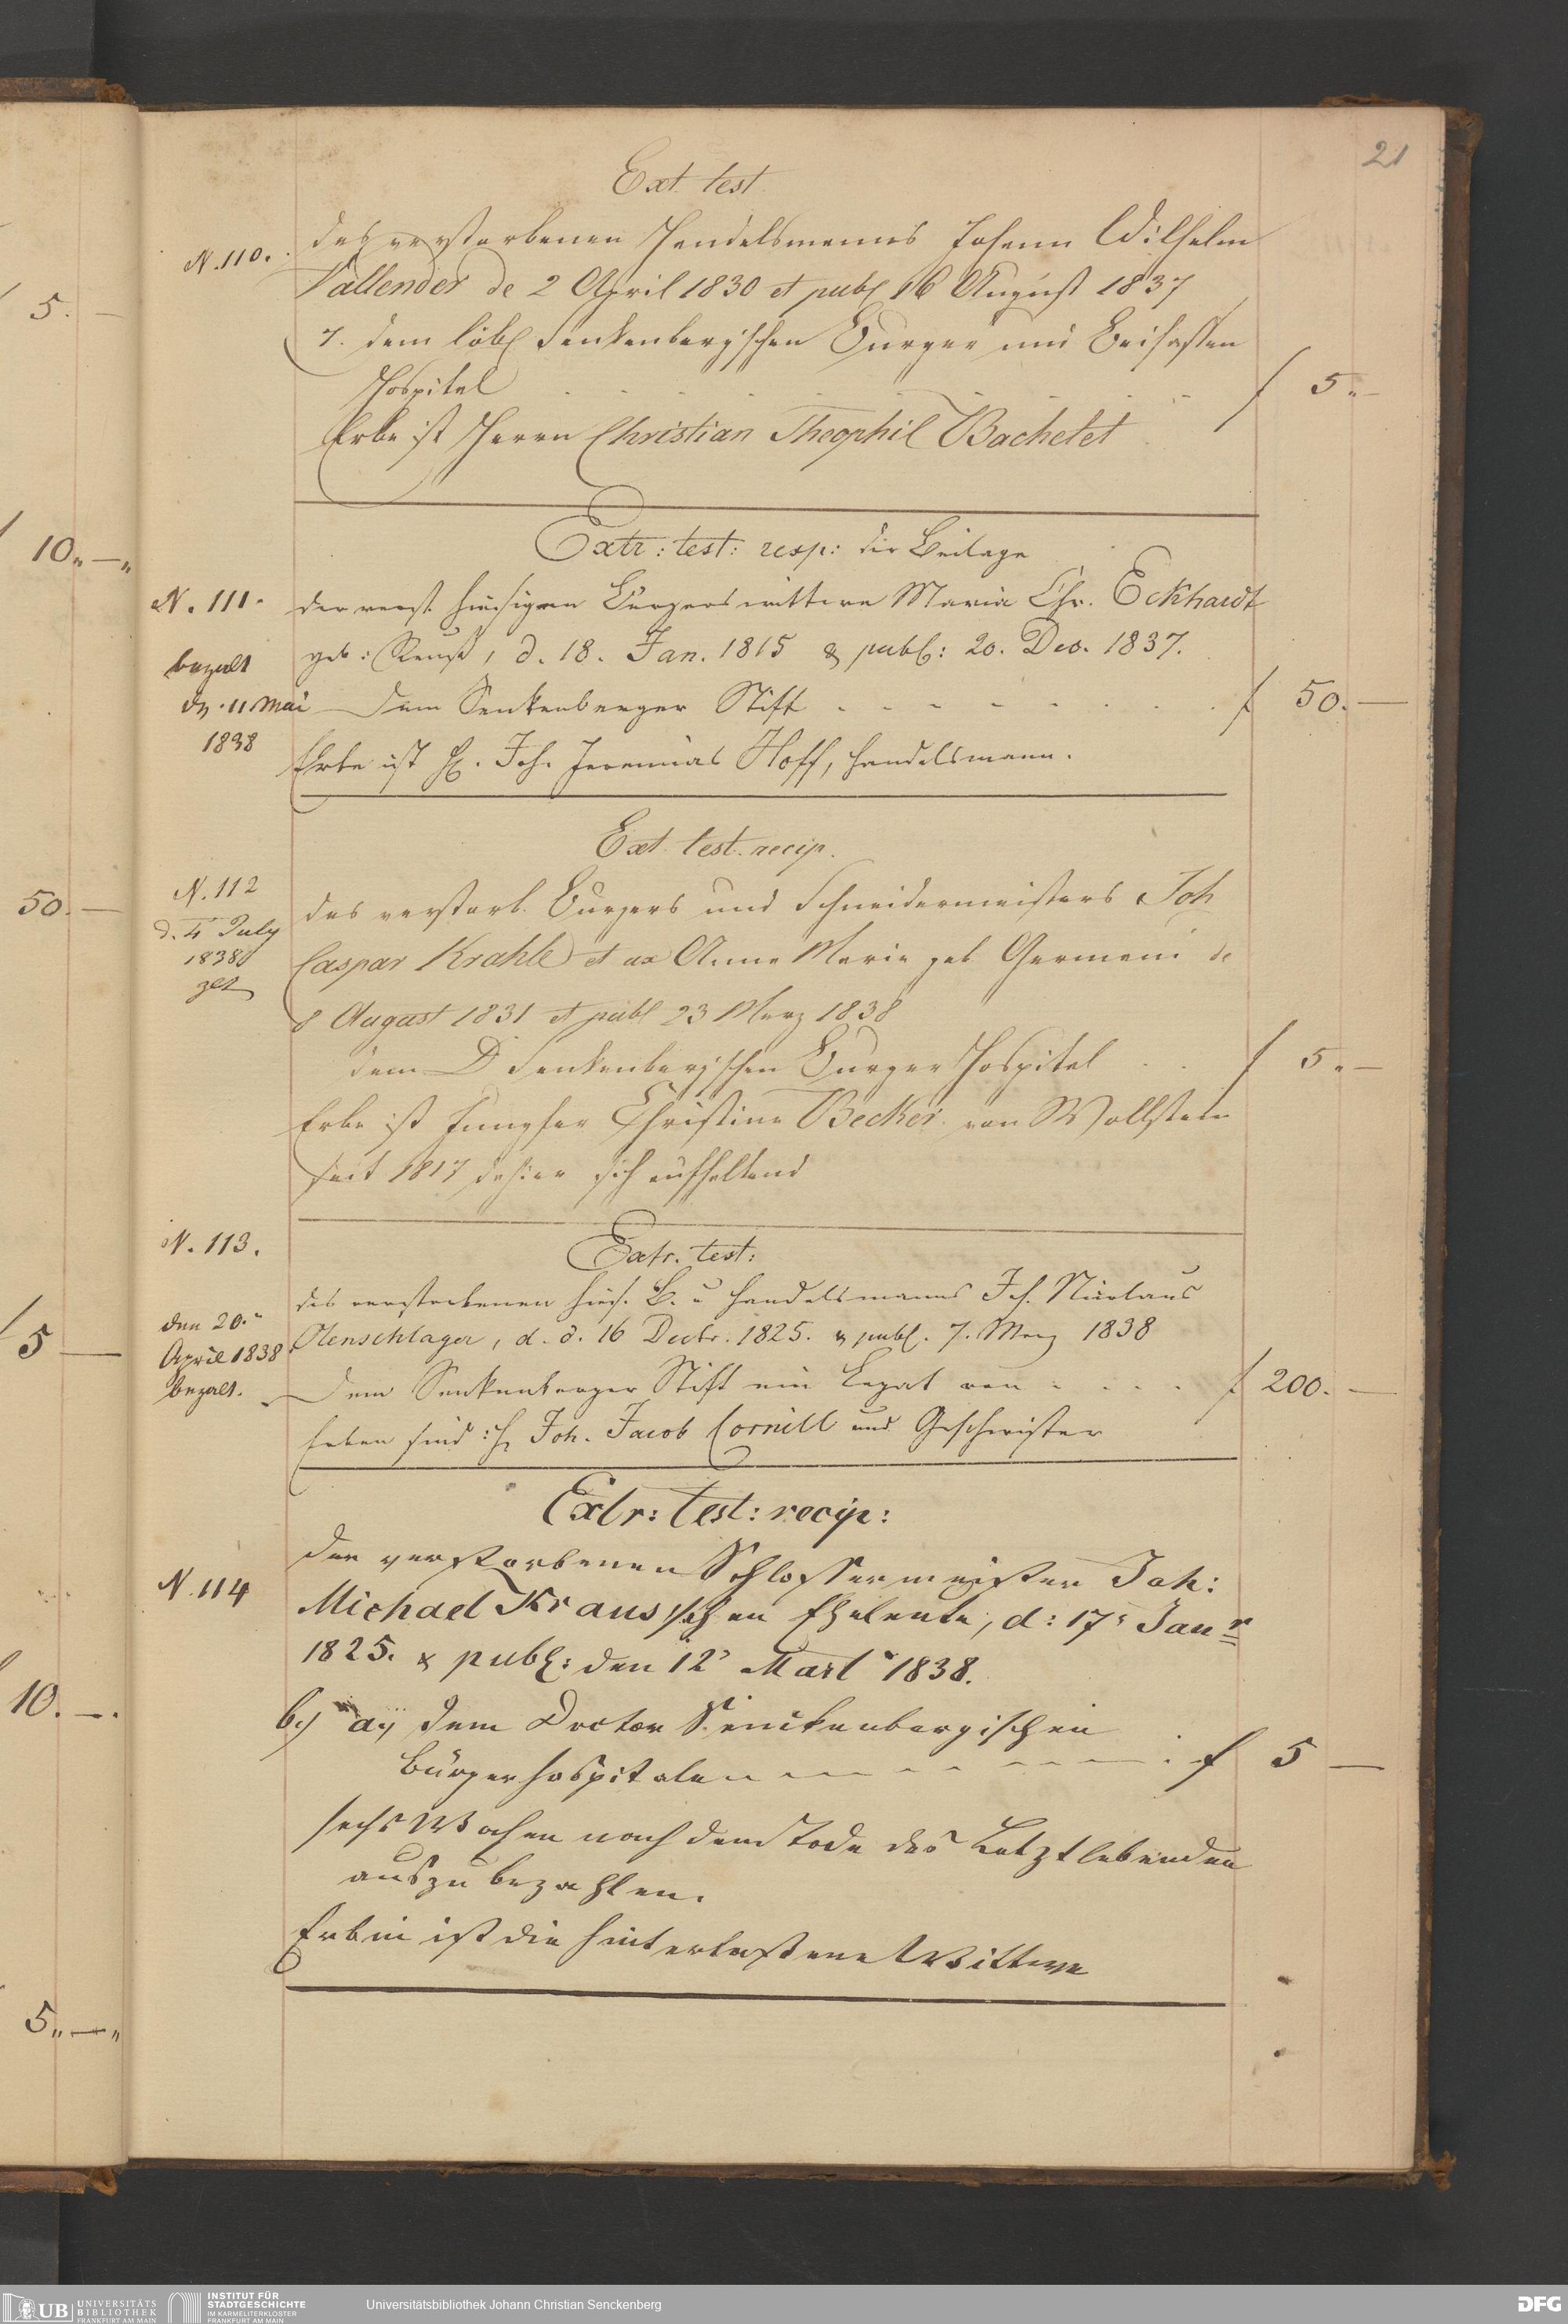 21
Ext. test.
N. 110. des verstorbenen Handelsmanns Johann Wilhelm
Vallender de 2 April 1830 et publ 16 August 1837
7. dem löbl Senkenbergischen Burger und Beisassen
Hospital f 5 „ —
Erbe ist Herrn Christian Theophil Bachelet
Extr: test: resp: der Beilage
N. 111. der verst. hiesigen Burgerswittwe Maria Chr. Eckhardt
geb: Reuß, d. 18. Jan. 1815 & publ: 20. Dec. 1837.
bezalt
den 11 Mai
1838
Dem Senkenberger Stift f 50. —
Erbe ist H. Joh. Jeremias Hoff, Handelsmann.
Ext. test. recip.
N. 112
d. 4 July
1838
des verstorb. Burgers und Schneidermeisters Joh
Caspar Krahle et ux Anna Maria geb Germani de
8 August 1831 et publ 23 Merz 1838
dem D Senkenbergischen Burger Hospital f 5 „ —
Erbe ist Jungfer Christine Becker von Wollstein
seit 1817 dahier sich aufhaltend
N. 113.
Extr. test:
des verstorbenen hies. B. u Handelsmanns Joh. Nicolaus
den 20.
April 1838
bezalt.
Olenschlager, d. d. 16 Decbr. 1825. & publ. 7. Merz 1838
Dem Senkenberger Stift ein Legat von f 200. —
Erben sind: H Joh. Jacob Cornill und Geschwister
Extr: test: recip:
N. 114
der verstorbenen Schlossermeister Joh:
Michael Krausschen Eheleute, d: 17 Janr
1825. & publ: den 12 Mart 1838.
b.) a.) dem Doctor Senckenbergischen
Bürgerhospitale f 5 —
sechs Wochen nach dem Tode des Letztlebenden
auszubezahlen.
Erbin ist die hinterlassene Wittwe
5. —
10 „ — „
50. —
5 —
10. — .
5 „ — „
UB UNIVERSITÄTS
BIBLIOTHEK
FRANKFURT AM MAIN
INSTITUT FÜR
STADTGESCHICHTE
IM KARMELITERKLOSTER
FRANKFURT AM MAIN
Universitätsbibliothek Johann Christian Senckenberg
DFG